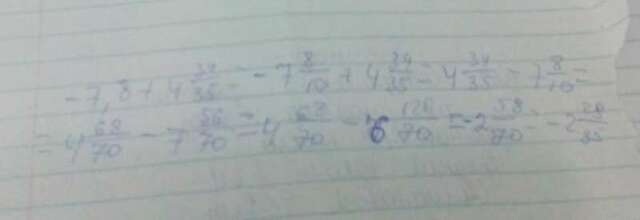 -7,8 + 4 34/35 = -7 8/10 + 4 34/35 = 4 34/35 - 7 8/10 =
= 4 68/70 - 7 56/70 = 4 68/70 - 6 126/70 = -2 58/70 = -2 29/35